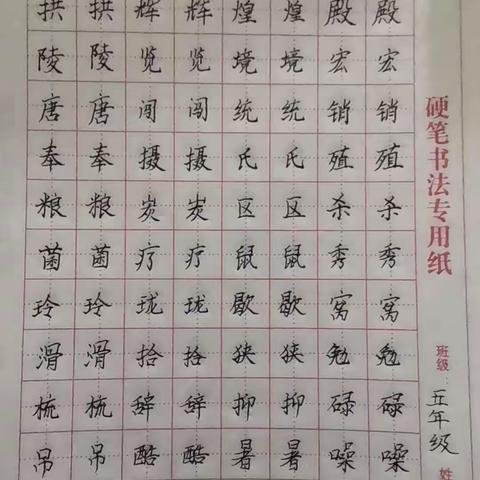 拱 拱 辉 辉 煌 煌 殿 殿
陵 陵 览 览 境 境 宏 宏
唐 唐 闯 闯 统 统 销 销
奉 奉 摄 摄 氏 氏 殖 殖
粮 粮 炭 炭 区 区 杀 杀
菌 菌 疗 疗 鼠 鼠 秀 秀
玲 玲 珑 珑 歇 歇 窝 窝
滑 滑 拾 拾 狭 狭 勉 勉
梳 梳 辞 辞 抑 抑 碌 碌
吊 吊 酷 酷 暑 暑 噪 噪
硬笔书法专用纸
班级 五年级
姓